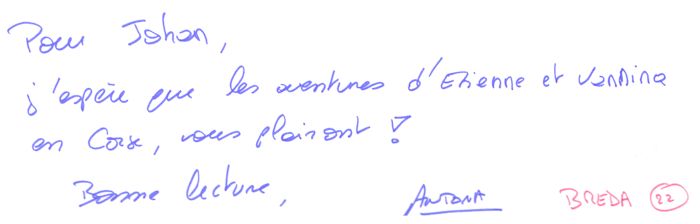 Pour Johan,
j'espère que les aventures d'Etienne et Vannina
en Corse, vous plairont !
Bonne lecture,
ANTONA BREDA 22